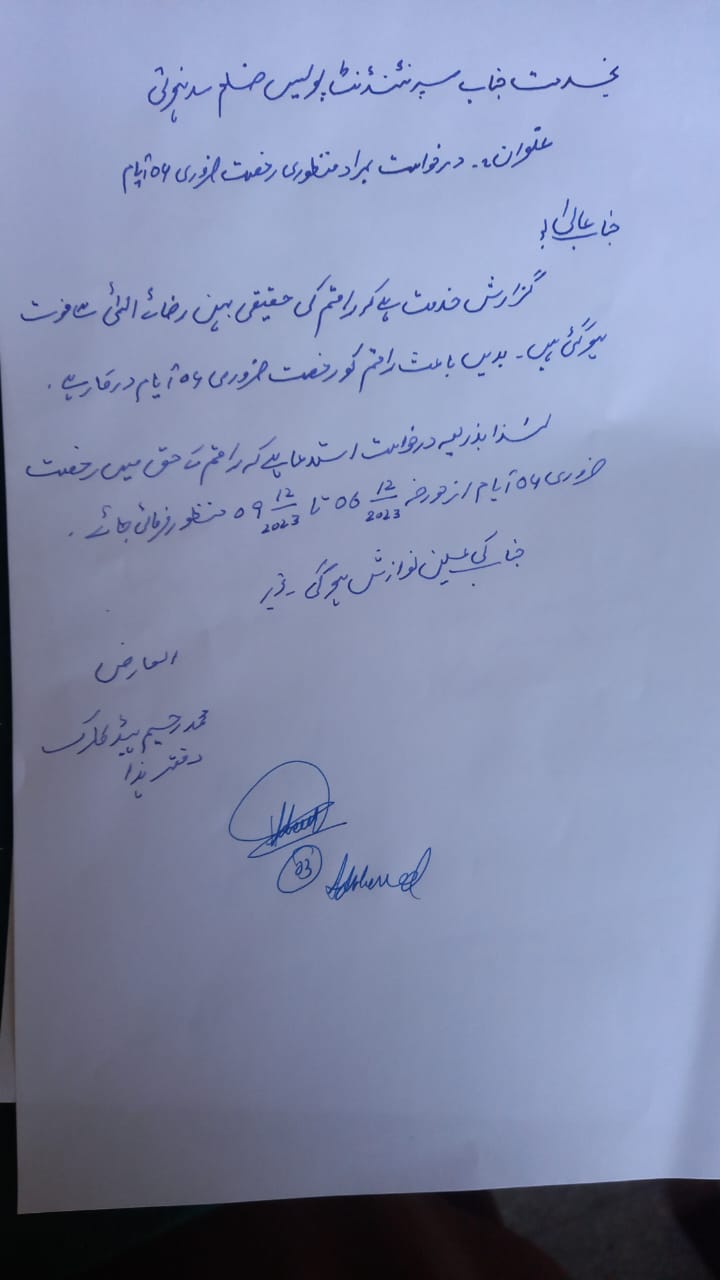 بخدمت جناب سپرنٹنڈنٹ پولیس ضلع سدہنوتی
عنوان:۔ درخواست بمراد منظوری رخصت ضروری 04 ایام
جناب عالیٰ!
گزارش خدمت ہے کہ راقم کی حقیقی بہن رضائے الٰہی سے فوت
ہو گئی ہیں۔ بدیں باعث راقم کو رخصت ضروری 04 ایام درکار ہے۔
لہٰذا بذریعہ درخواست استدعا ہے کہ راقم کے حق میں رخصت
ضروری 04 ایام از مورخہ 06 12/2023 تا 09 12/2023 منظور فرمائی جائے۔
جناب کی عین نوازش ہو گی۔
العارض
محمد رحیم ہیڈ کلرک
دفتر ہذا
03